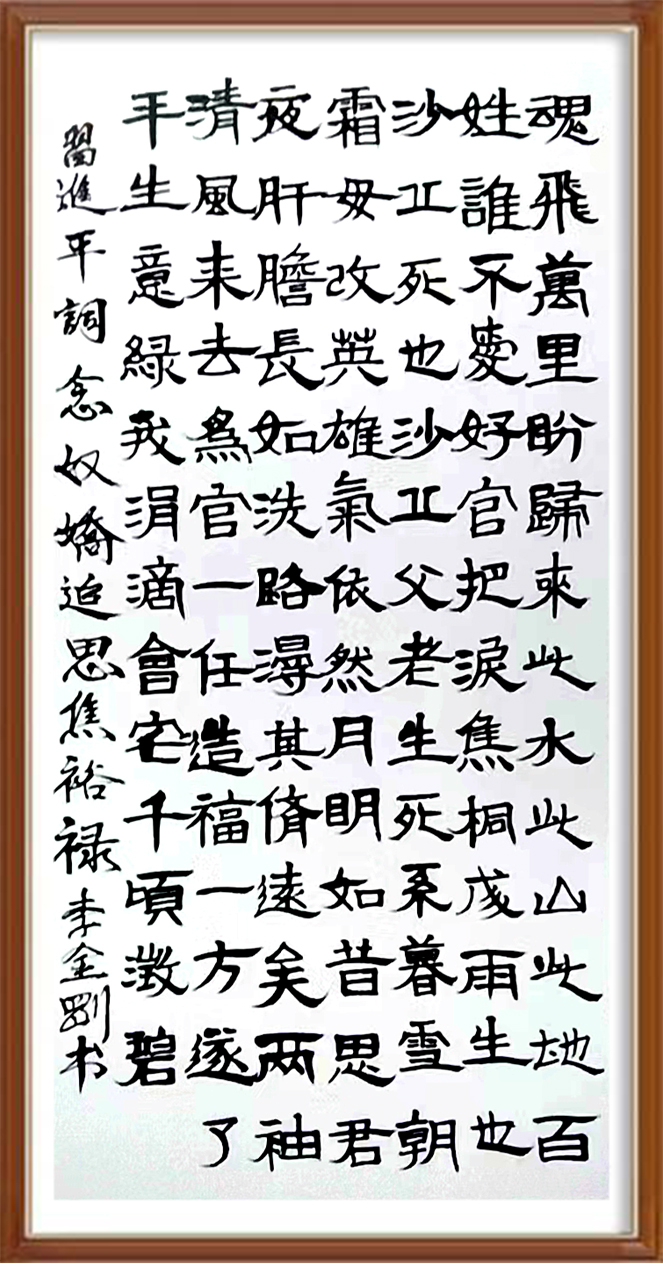 魂飛萬里盼歸來此水此山此地百
姓誰不愛好官把淚焦桐成雨生也
沙丘死也沙丘父老生死系暮雪朝
霜毋改英雄氣依然月明如昔思君
夜肝膽長如洗路漫其脩遠矣两袖
清風来去為官一任造福一方遂了
平生意綠我涓滴會它千頃澂碧
習進平詞念奴嬌追思焦裕禄李金剛书